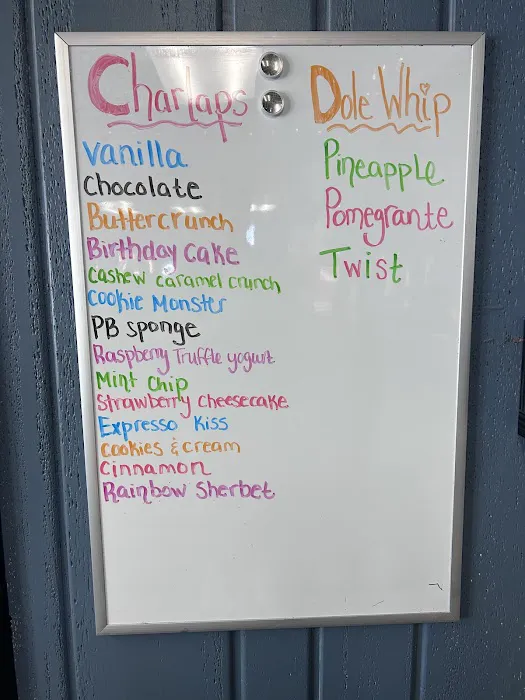 Charlaps
Vanilla
Chocolate
Buttercrunch
Birthday Cake
Cashew caramel crunch
Cookie Monster
PB sponge
Raspberry Truffle yogurt
Mint Chip
Strawberry Cheesecake
Expresso Kiss
Cookies & cream
Cinnamon
Rainbow Sherbet
Dole Whip
Pineapple
Pomegrante
Twist